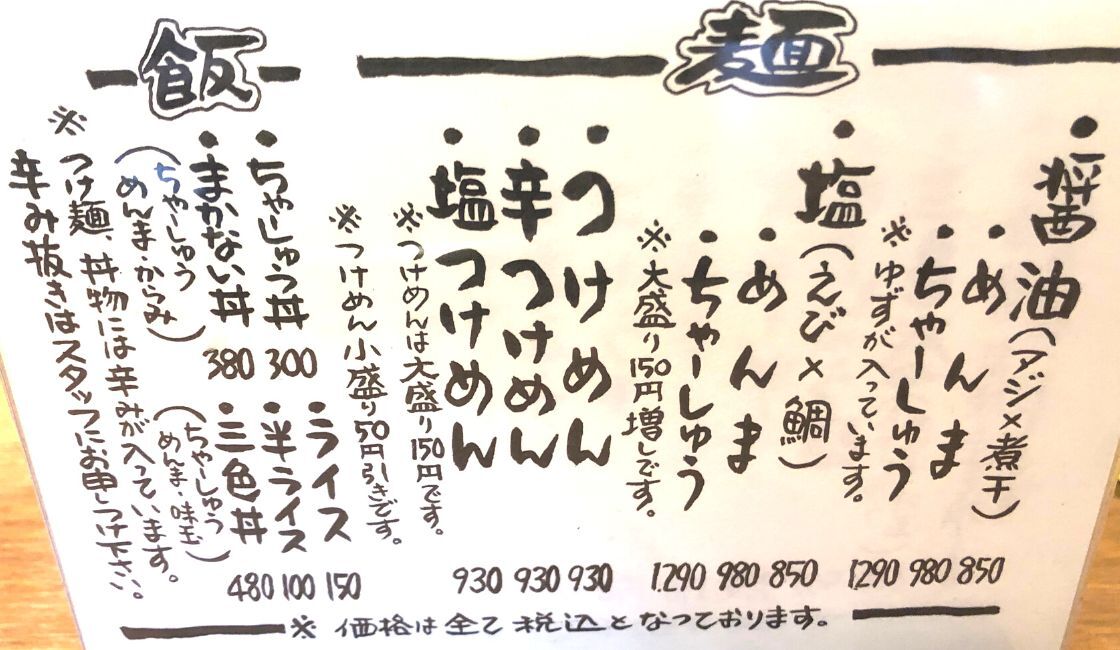 麺
・醤油(アジ×煮干)
・めんま
・ちゃーしゅう
※ゆずが入っています。
850
980
1290
・塩(えび×鯛)
・めんま
・ちゃーしゅう
※大盛り150円増しです。
850
980
1.290
・つけめん 930
・辛つけめん 930
・塩つけめん 930
※つけめんは大盛り150円です。
※つけめん小盛り50円引きです。
飯
・ちゃしゅう丼 300
・まかない丼 380
(ちゃーしゅう
めんま・からみ)
・ライス 150
・半ライス 100
・三色丼 480
(ちゃーしゅう
めんま・味玉)
※つけ麺、丼物には辛みが入っています。
辛み抜きはスタッフにお申しつけ下さい。
※価格は全て税込となっております。